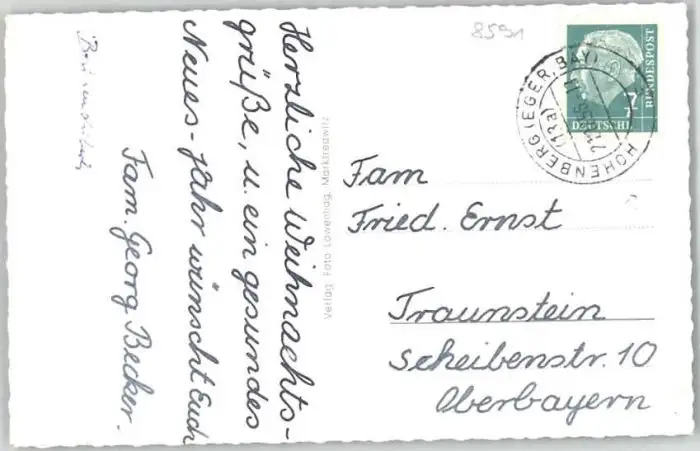 Herzliche Weihnachts-
grüße, u. ein gesundes
Neues-Jahr wünscht Euch
Fam. Georg Becker.
Verlag Foto Löwenhag, Marktredwitz
8591
DEUTSCHE
BUNDESPOST
7
HOHENBERG (EGER, BAY)
(13a)
Fam
Fried. Ernst
Traunstein
Scheibenstr. 10
Oberbayern